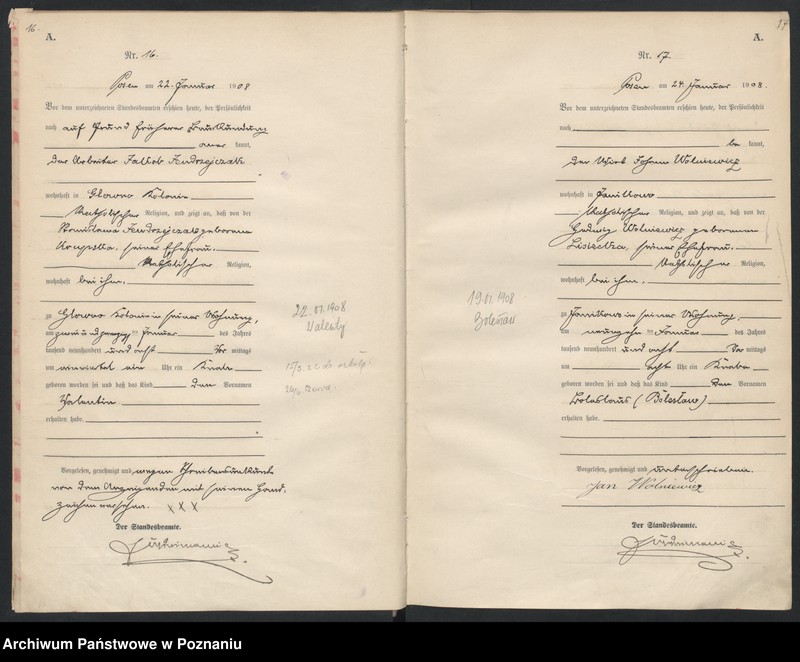 16.
A.
Nr. 16.
Posen am 22. Januar 1908
Vor dem unterzeichneten Standesbeamten erschien heute, der Persönlichkeit
nach auf Grund früherer Beurkundung
aner kannt,
der Arbeiter Jakob Andrzejczak
wohnhaft in Glowno Kolonie
katholischer Religion, und zeigt an, daß von der
Stanislawa Andrzejczak geborenen
seiner Ehefrau,
katholischer Religion,
wohnhaft bei ihm,
zu Glowno Kolonie in seiner Wohnung,
am zweiundzwanzigsten Januar des Jahres
tausend neunhundert und acht Vor mittags
um einviertel ein Uhr ein Knabe
geboren worden sei und daß das Kind den Vornamen
Valentin
erhalten habe.
Vorgelesen, genehmigt und wegen Schreibensunkunde
von dem Anzeigenden mit seinem Hand-
zeichen versehen. XXX
Der Standesbeamte.
22.01.1908
Walenty
17
A.
Nr. 17
Posen am 24. Januar 1908.
Vor dem unterzeichneten Standesbeamten erschien heute, der Persönlichkeit
nach
be kannt,
der Wirt Johann Wolniewicz
wohnhaft in Janikowo
katholischer Religion, und zeigt an, daß von der
Hedwig Wolniewicz geborenen
seiner Ehefrau,
katholischer Religion,
wohnhaft bei ihm,
zu Janikowo in seiner Wohnung,
am neunzehnten Januar des Jahres
tausend neunhundert und acht Vor mittags
um acht Uhr ein Knabe
geboren worden sei und daß das Kind den Vornamen
Boleslaus (Bolesław)
erhalten habe.
Vorgelesen, genehmigt und unterschrieben.
Jan Wolniewicz
Der Standesbeamte.
19.01.1908
Bolesław
Archiwum Państwowe w Poznaniu